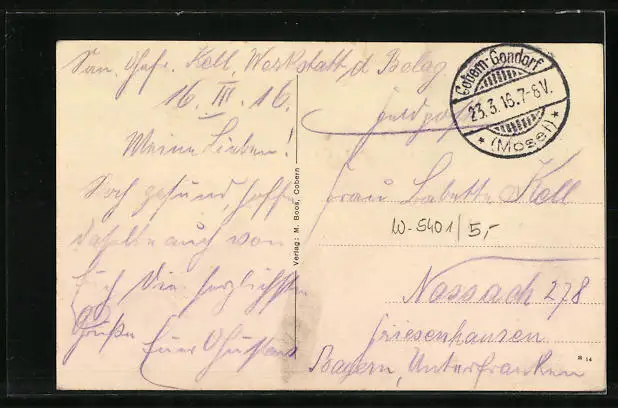 San. Gefr. Koll, Werkstatt d. Belag.
16. III. 16.
Meine Lieben!
Noch gesund, hoffe
dasselbe auch von
Euch. Die herzlichsten
Grüße Euer
Feldpost
Cobern-Gondorf
23.3.16.7-8V.
* (Mosel) *
Frau Babette Koll
W-5401/5,-
Nassach 278
Friesenhausen
Bayern, Unterfranken
Verlag: M. Boos, Cobern
14